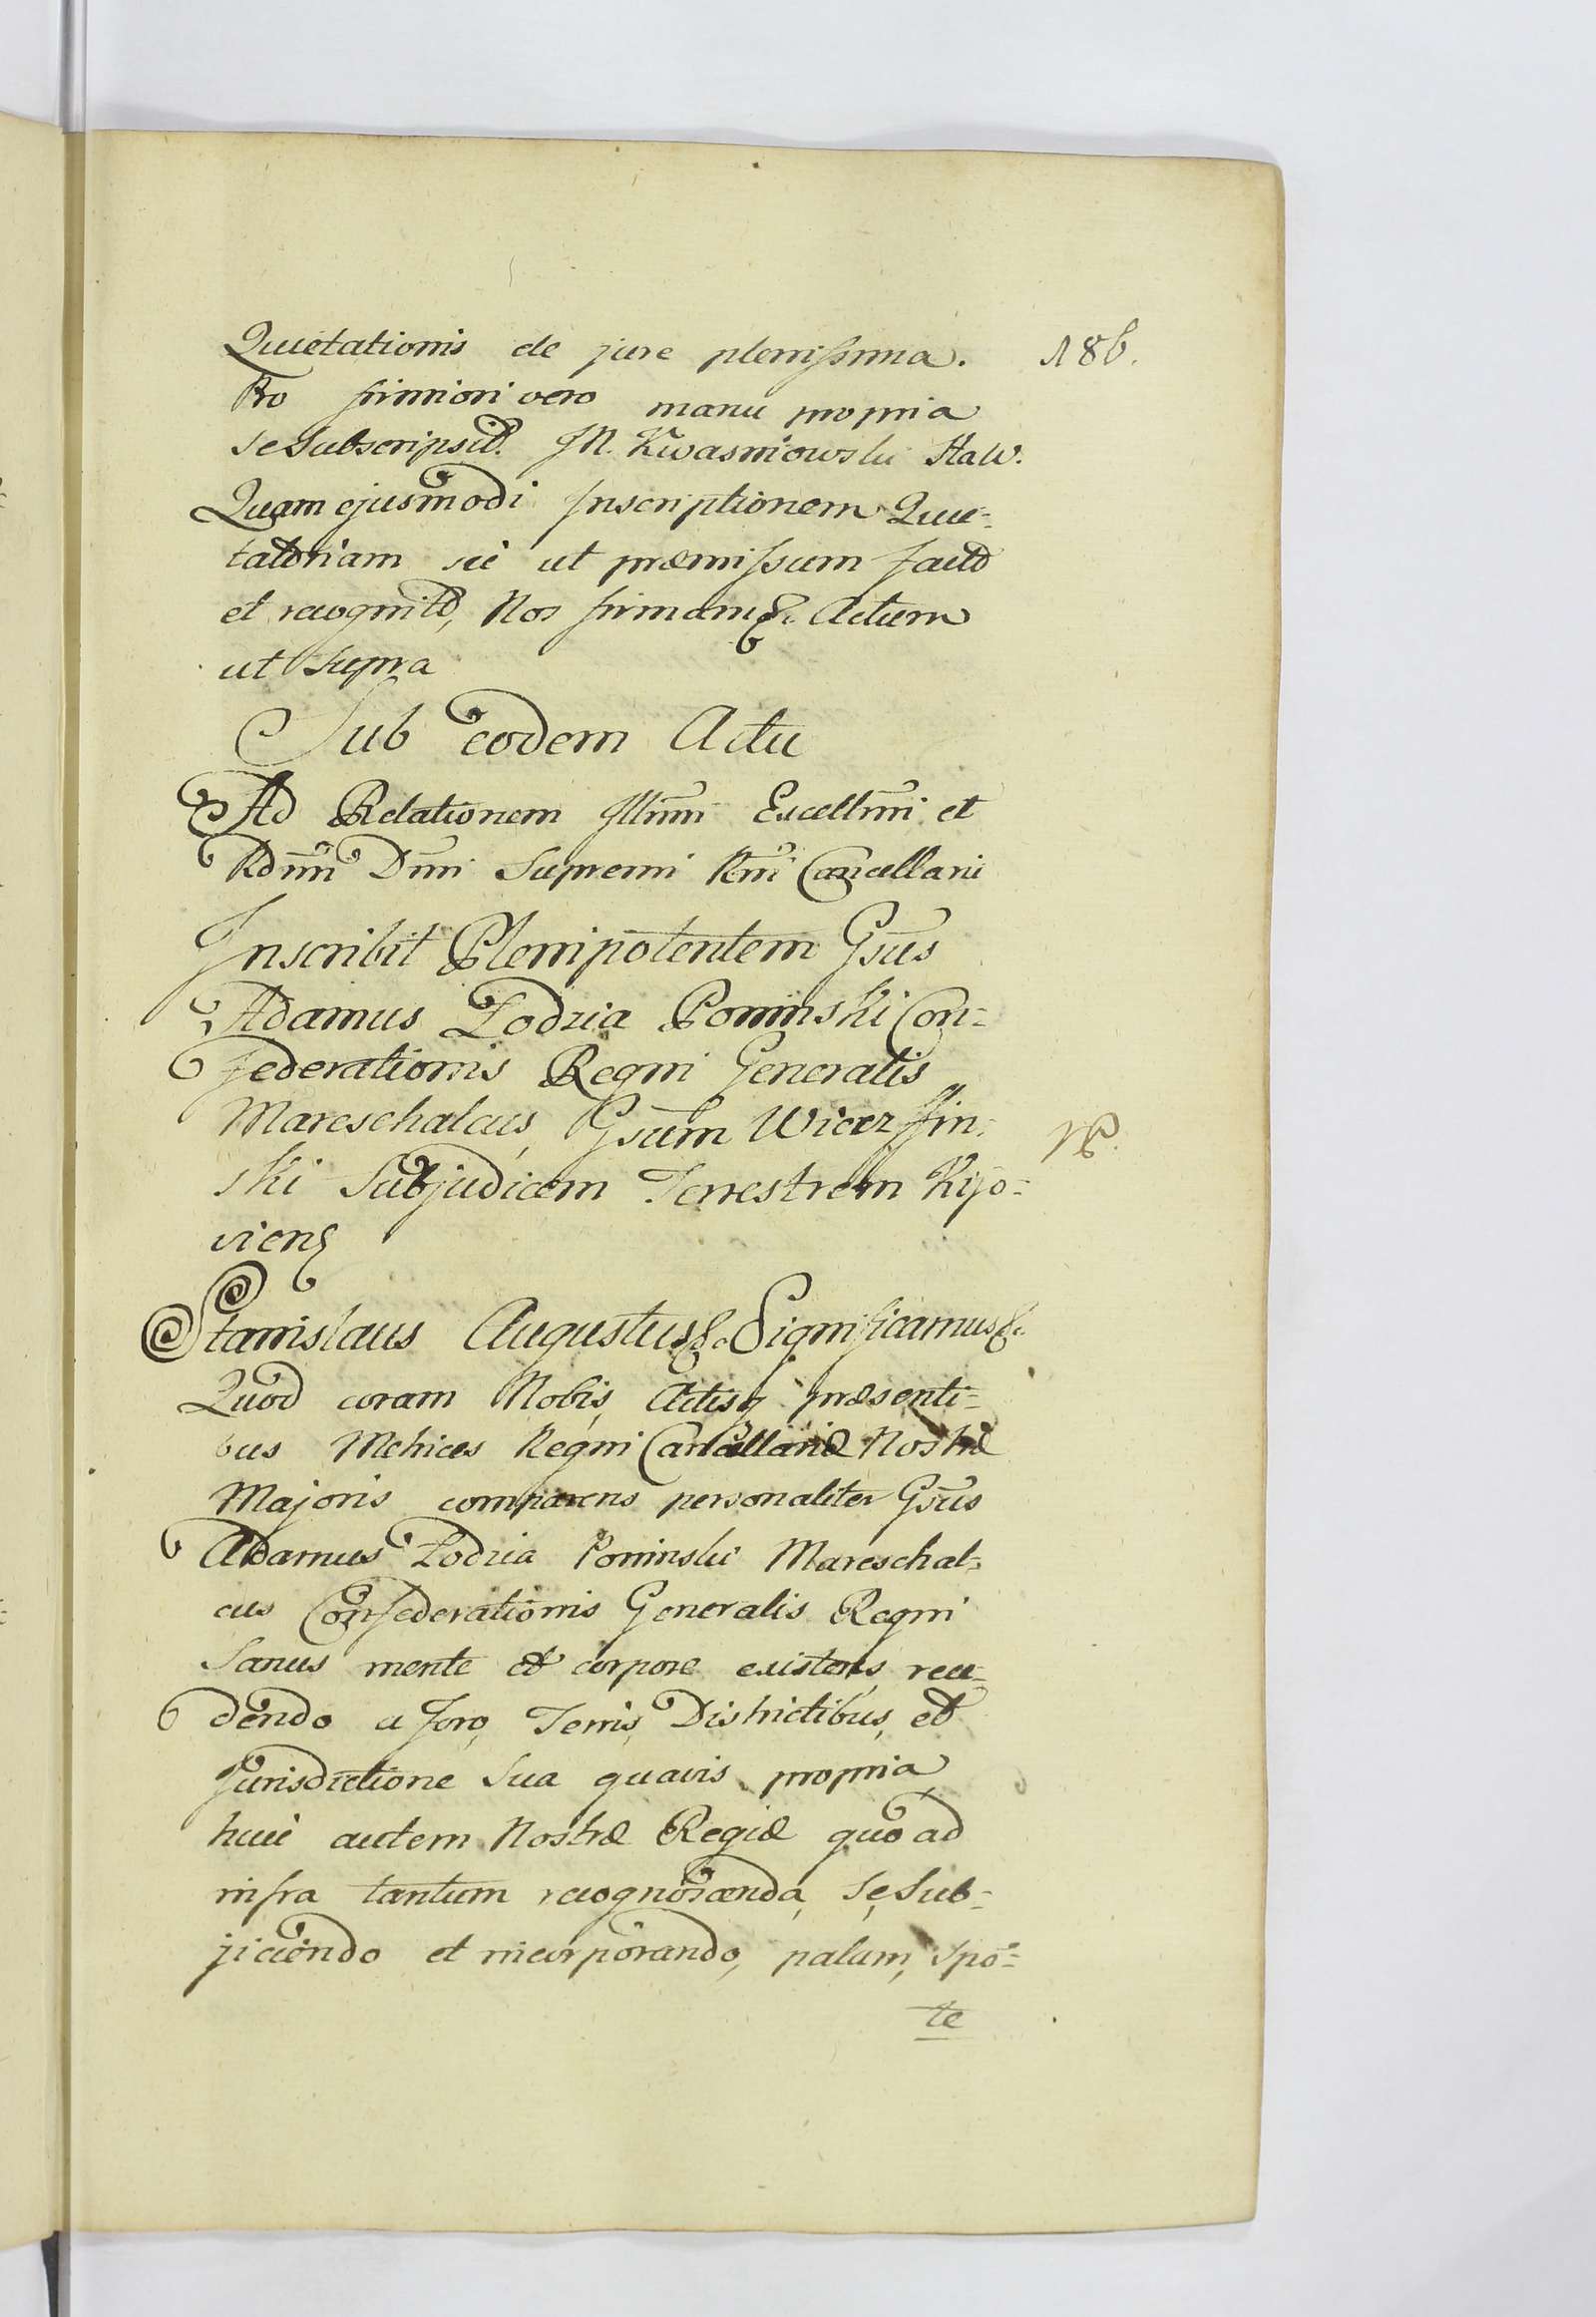 Quietationis de jure plenissima. 186.
Pro firmiori vero manu propria
se Subscripsit. JN. Kwasniowski StaW.
Quam ejusmodi Inscriptionem Quie=
tatoriam sic ut præmissum facto
et recognito, Nos firmam &c. Actum
ut Supra
Sub eodem Actu
Ad Relationem Illmi Excellmi et
Rdmi Dni Supremi Rni Cancellarii
Inscribit Plenipotentem Gsus
Adamus Łodzia Poninski Con=
federationis Regni Generalis
Mareschalcus, Gsum Wierzffin=
ski Subjudicem Terrestrem Kijo=
viens
Stanislaus Augustus &c. Significamus &c.
Quod coram Nobis, Actisq præsenti=
bus Mtrices Regni Cancellariæ Nostræ
Majoris comparens personaliter Gsus
Adamus Łodzia Poninski Mareschal=
cus Confederationis Generalis Regni
Sanus mente et corpore existens, rece=
dendo a foro, Terris, Districtibus, et
Jurisdictione Sua quavis propria
huic autem Nostræ Regiæ quo ad
infra tantum recognoscenda, se, Sub=
jiciendo et incorporando, palam, spō=
te